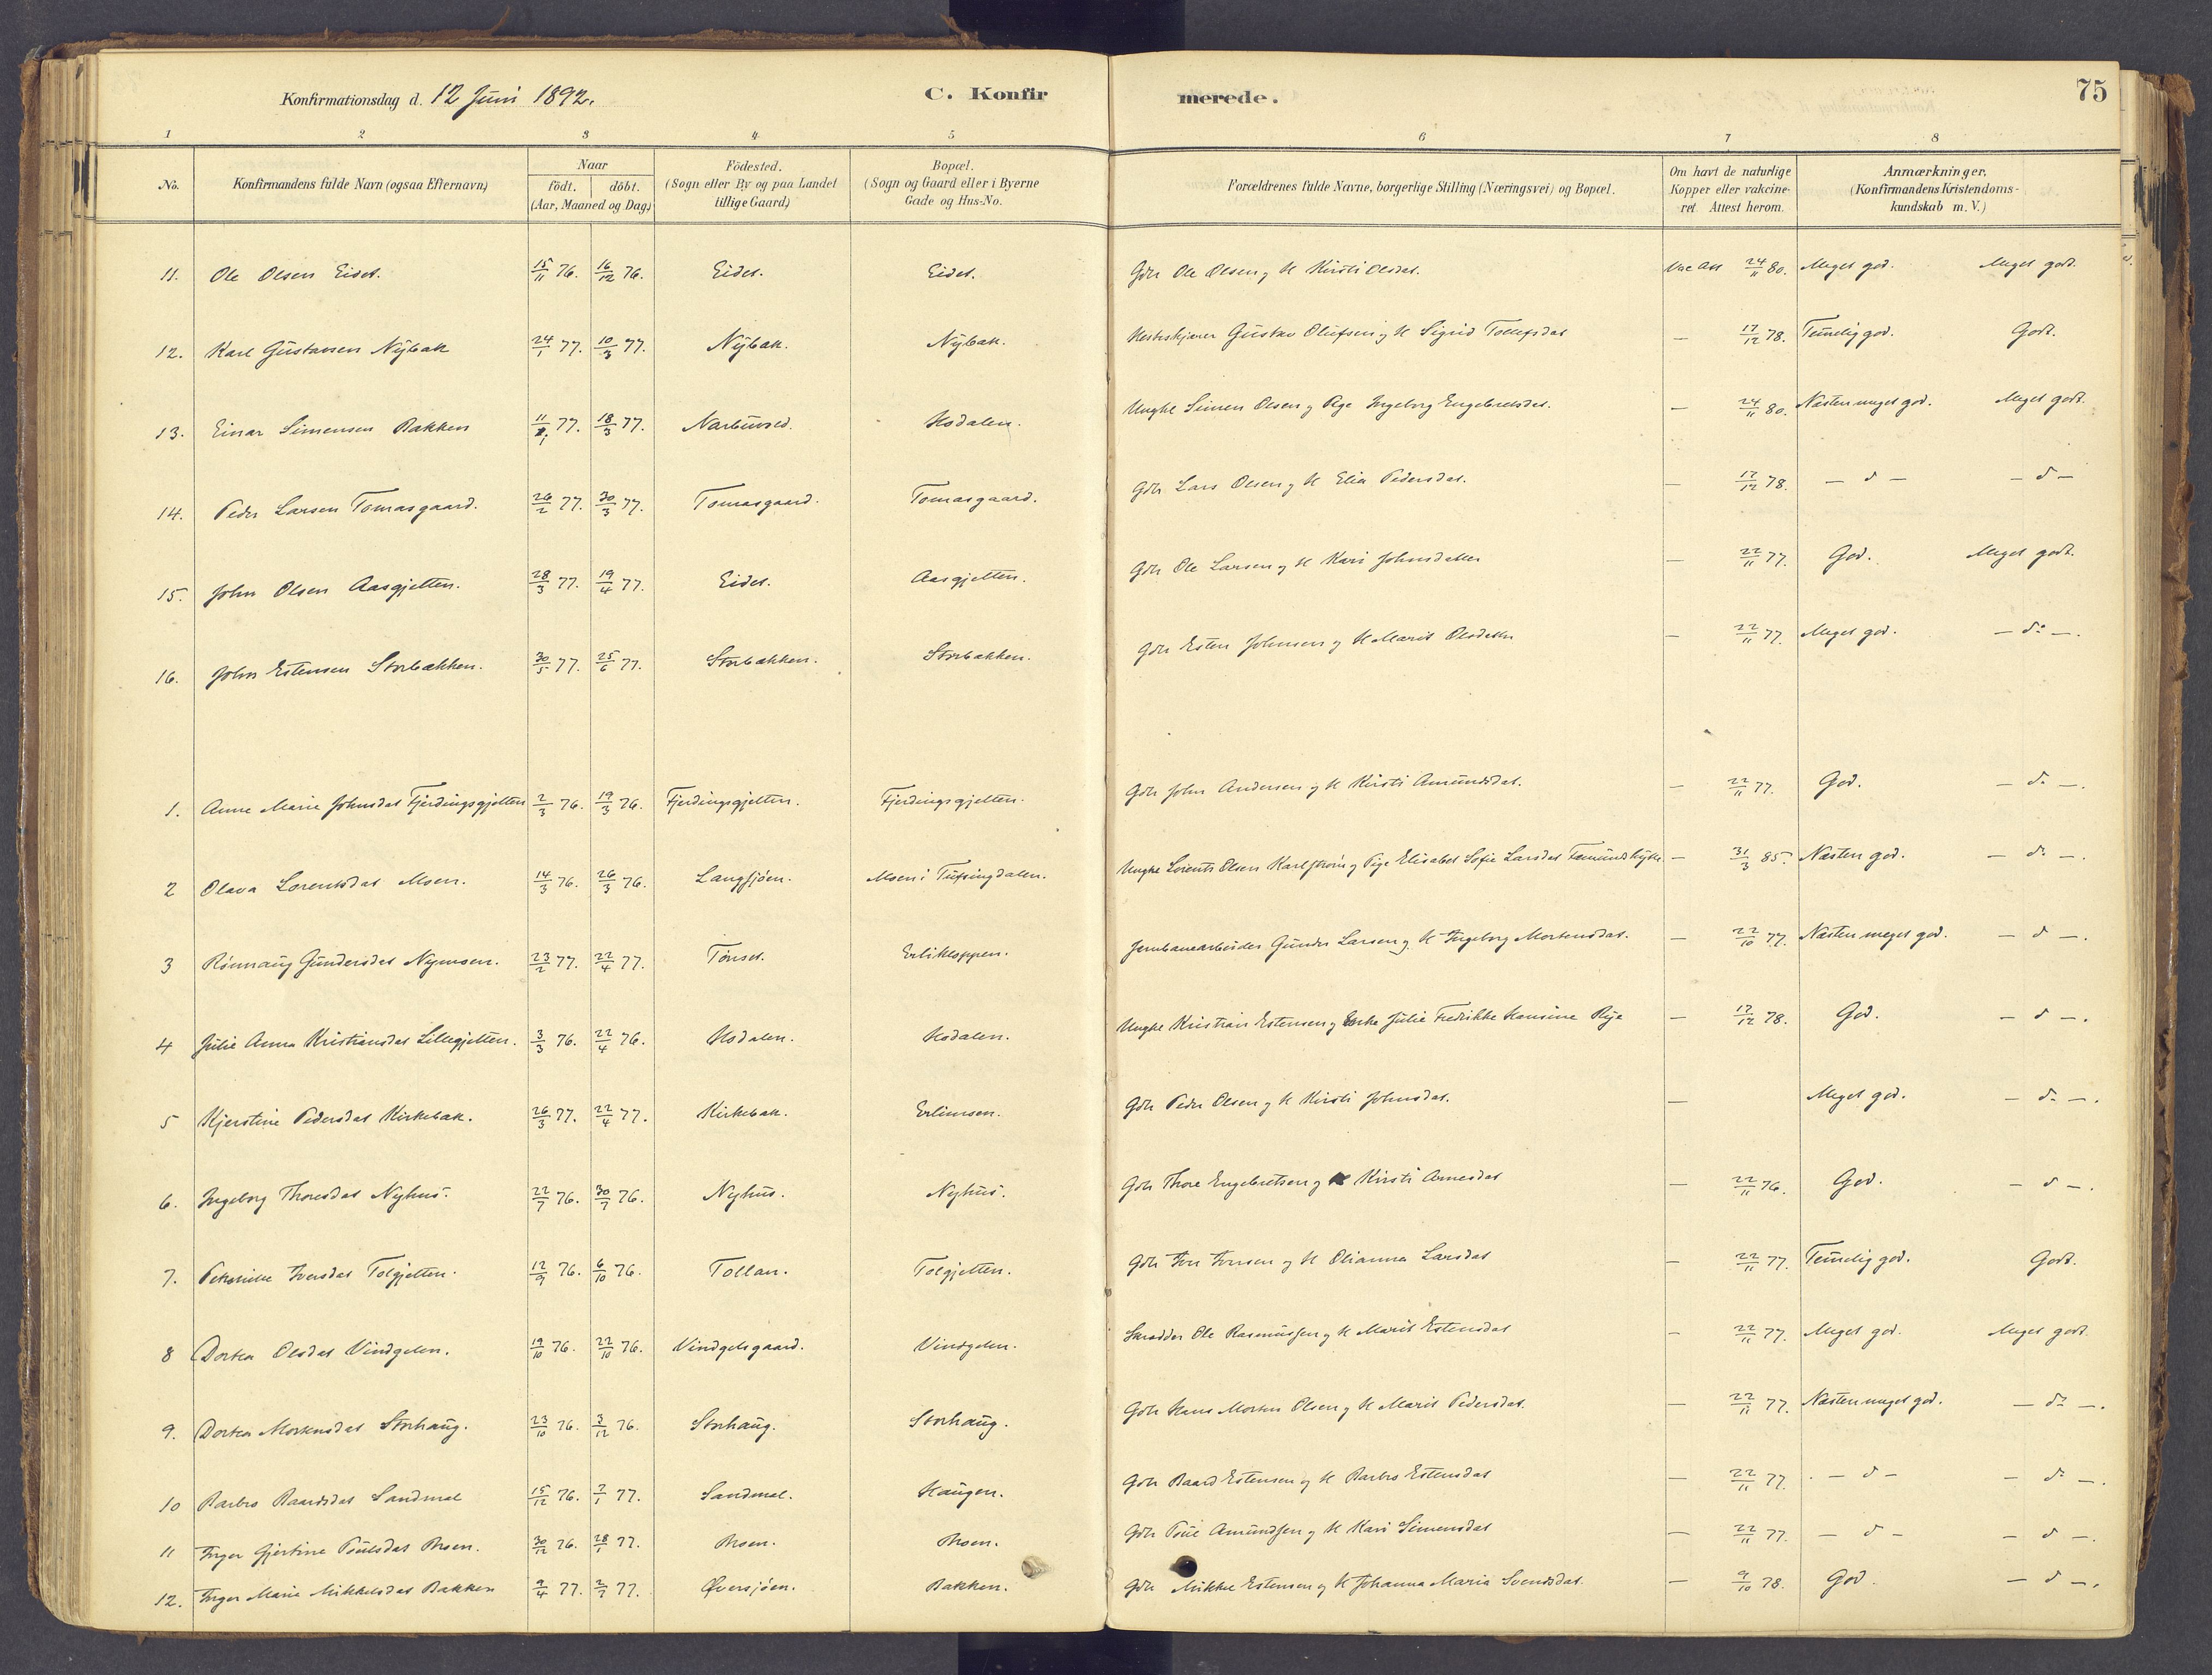 Konfirmationsdag d. 12 Juni 1892. C. Konfirmerede. 75
1 2 3 4 5 6 7 8
No. Konfirmandens fulde Navn (ogsaa Efternavn) Naar födt. döbt. (Aar, Maaned og Dag) Födested. (Sogn eller By og paa Landet tillige Gaard) Bopæl. (Sogn og Gaard eller i Byerne Gade og Hus-No. Forældrenes fulde Navne, borgerlige Stilling (Næringsvei) og Bopæl. Om havt de naturlige Kopper eller vakcineret. Attest herom. Anmærkninger, (Konfirmandens Kristendomskundskab m. V.)
11. Ole Olsen Eidet. 15/11 76. 16/12 76. Eidet. Eidet. Gdr Ole Olsen og H Kirsti Olsdat. Vac Att 24/11 80. Meget god. Meget godt.
12. Karl Gustavsen Nybak 24/1 77. 10/3 77. Nybak. Nybak. Gustav Olufsen og H Sigrid Tollefsdat — 17/12 78. Temelig god. Godt.
13. Einar Simensen Bakken 11/1 77. 18/3 77. Narbuvoed. Hodalen. Ungke Simen Olsen og Pige Ingeborg Engebretsdat. — 24/11 80. Næsten meget god. Meget godt.
14. Peder Larsen Tomasgaard. 26/2 77. 30/3 77. Tomasgaard. Tomasgaard. Gdr Lars Olsen og H Elia Pedersdat. — 17/12 78. — d — — d —
15. John Olsen Aasgjetten. 28/3 77. 19/4 77. Eidet. Aasgjetten. Gdr Ole Larsen og H Kari Johnsdatter — 22/11 77. God. Meget godt.
16. John Estensen Storbækken. 30/5 77. 25/6 77. Storbækken. Storbækken. Gdr Esten Johnsen og H Marit Olsdatter — 22/11 77. Meget god. — do —.
1. Anne Marie Johnsdat Fjerdingsgjetten 2/3 76. 19/3 76. Fjerdingsgjetten. Fjerdingsgjetten. Gdr John Andersen og H Kirsti Amundsdat. — 22/11 77. God. — do —.
2 Olava Lorentsdat Moen. 14/3 76. 26/3 76. Langsjöen. Moen i Tufsingdalen. Ungke Lorents Olsen Karlstrøm og Pige Elisabet Sofie Larsdat — 31/3 85. Næsten god. — do —.
3 Rönnaug Gundersdat Nymoen. 23/2 77. 22/4 77. Tönset. Erlikloppen. Jernbanearbeider Gunder Larsen og H Ingeborg Mortensdat. — 22/10 77. Næsten meget god. — d —.
4 Julie Anna Kristiansdat Lillegjetten. 3/3 76. 22/4 76. Hodalen. Hodalen. Ungke Kristian Estensen og Enke Julie Fredrikke Hansine Rye — 17/12 78. God. — d —.
5 Kjerstine Pedersdat Kirkebak. 26/3 77. 22/4 77. Kirkebak. Erlimoen. Gdr Peder Olsen og H Kirsti Johnsdat. — Meget god. — do —.
6. Ingeborg Thoresdat Nyhus. 22/7 76. 30/7 76. Nyhus. Nyhus. Gdr Thore Engebretsen og H Kirsti Arnesdat — 22/11 76. God. — d —.
7. Iversdat Tolgjetten. 12/9 76. 6/10 76. Tollan. Tolgjetten. Gdr Iver Iversen og H Olianna Larsdat — 22/11 77. Temelig god. Godt.
8 Dortea Olsdat Vindgelen. 19/10 76. 22/10 76. Vindgelsgaard. Vindgelen. Skrædder Ole Rasmussen og H Marit Estensdat — 22/11 77. Meget god. Meget godt.
9. Dortea Mortensdat Storhaug. 23/10 76. 3/12 76. Storhaug. Storhaug. Gdr Hans Morten Olsen og H Marit Pedersdat. — 22/11 77. Næsten meget god. — do —.
10 Barbro Baardsdat Sandmæl 15/12 76. 7/1 77. Sandmæl. Haugen. Gdr Baard Estensen og H Barbro Estensdat — 22/11 77. — d — — do —.
11 Inger Gjertine Poulsdat Moen. 30/12 76. 28/1 77. Moen. Moen. Gdr Poul Amundsen og H Kari Simensdat — 22/11 77. — d — — d —.
12. Inger Marie Mikkelsdat Bakken 9/4 77. 2/7 77. Øversjöen. Bakken. Gdr Mikkel Estensen og H Johanna Maria Svendsdat. — 9/10 78. God. — d —.